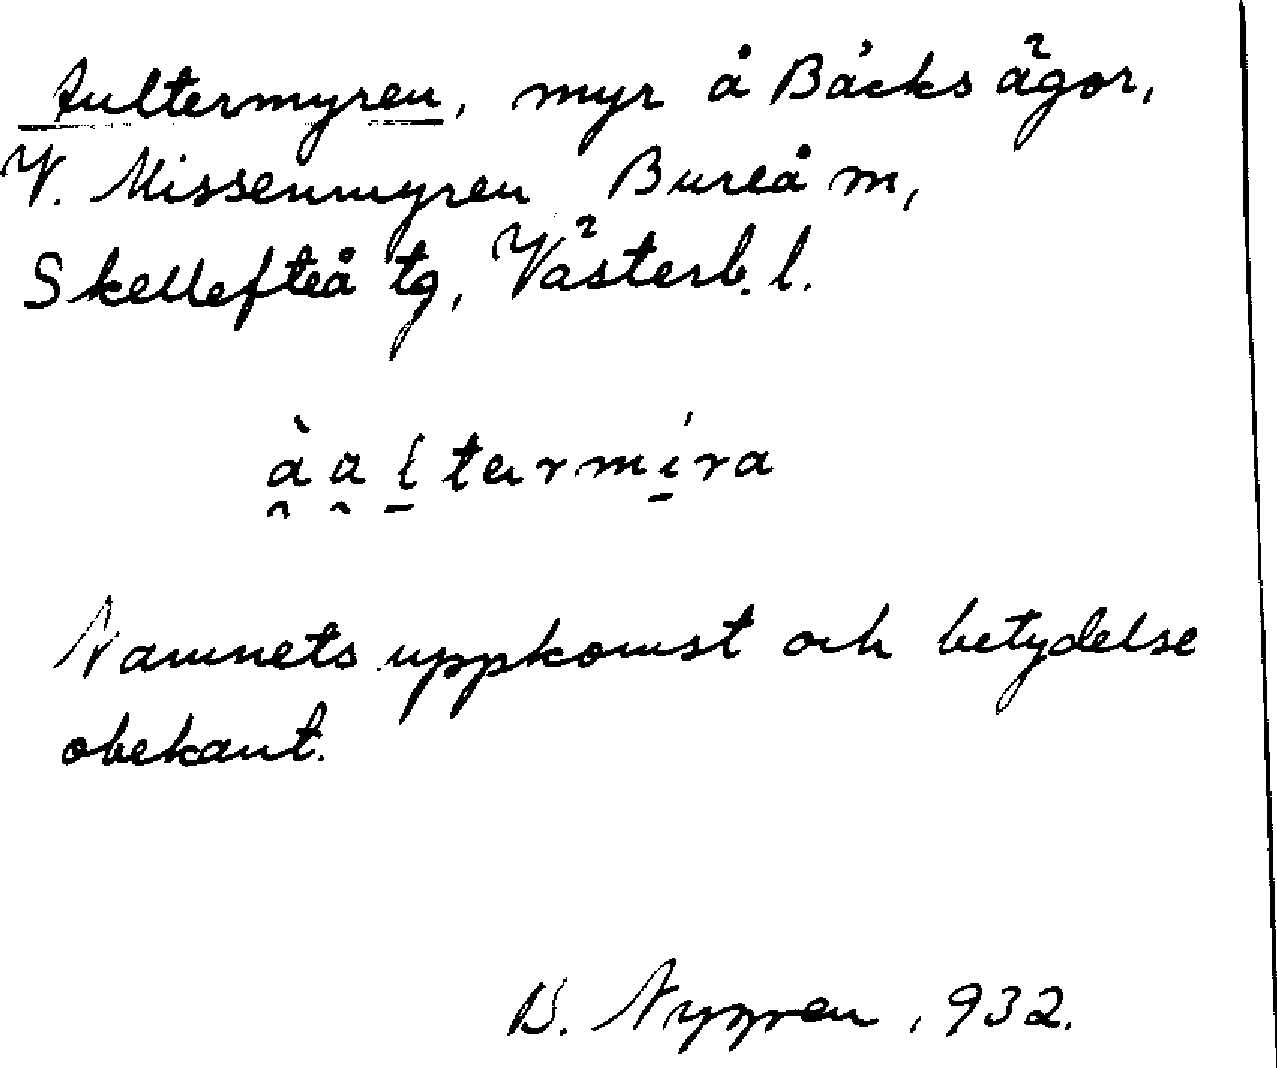 Aultermyren, myr å Bäcks ägor,
V. Missenmyren Bureå m,
Skellefteå tg, Västerb. l.
àaltermíra
Namnets uppkomst och betydelse
obekant.
B. Nygren, 932.